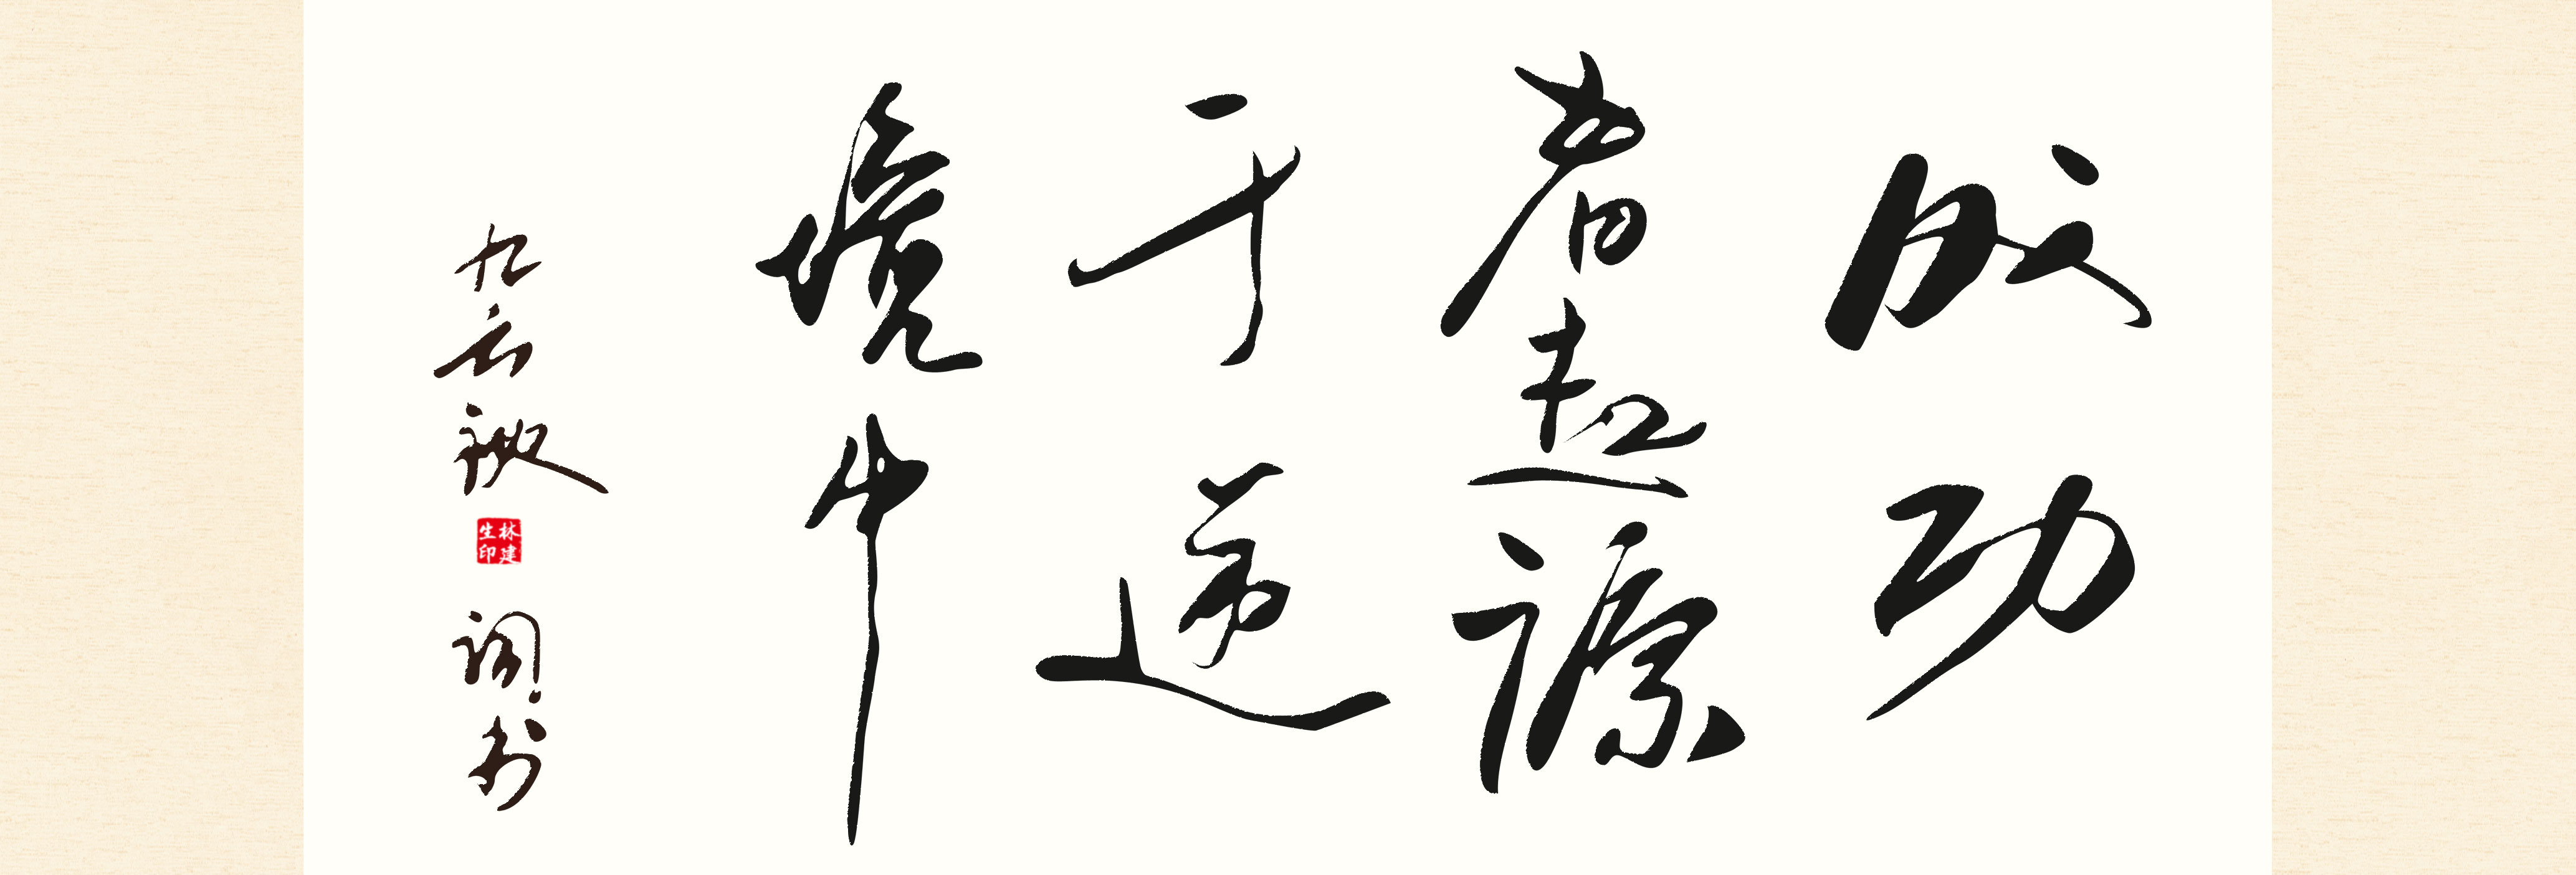 成功
者起源
于逆
境中
九云
林建生印
词书